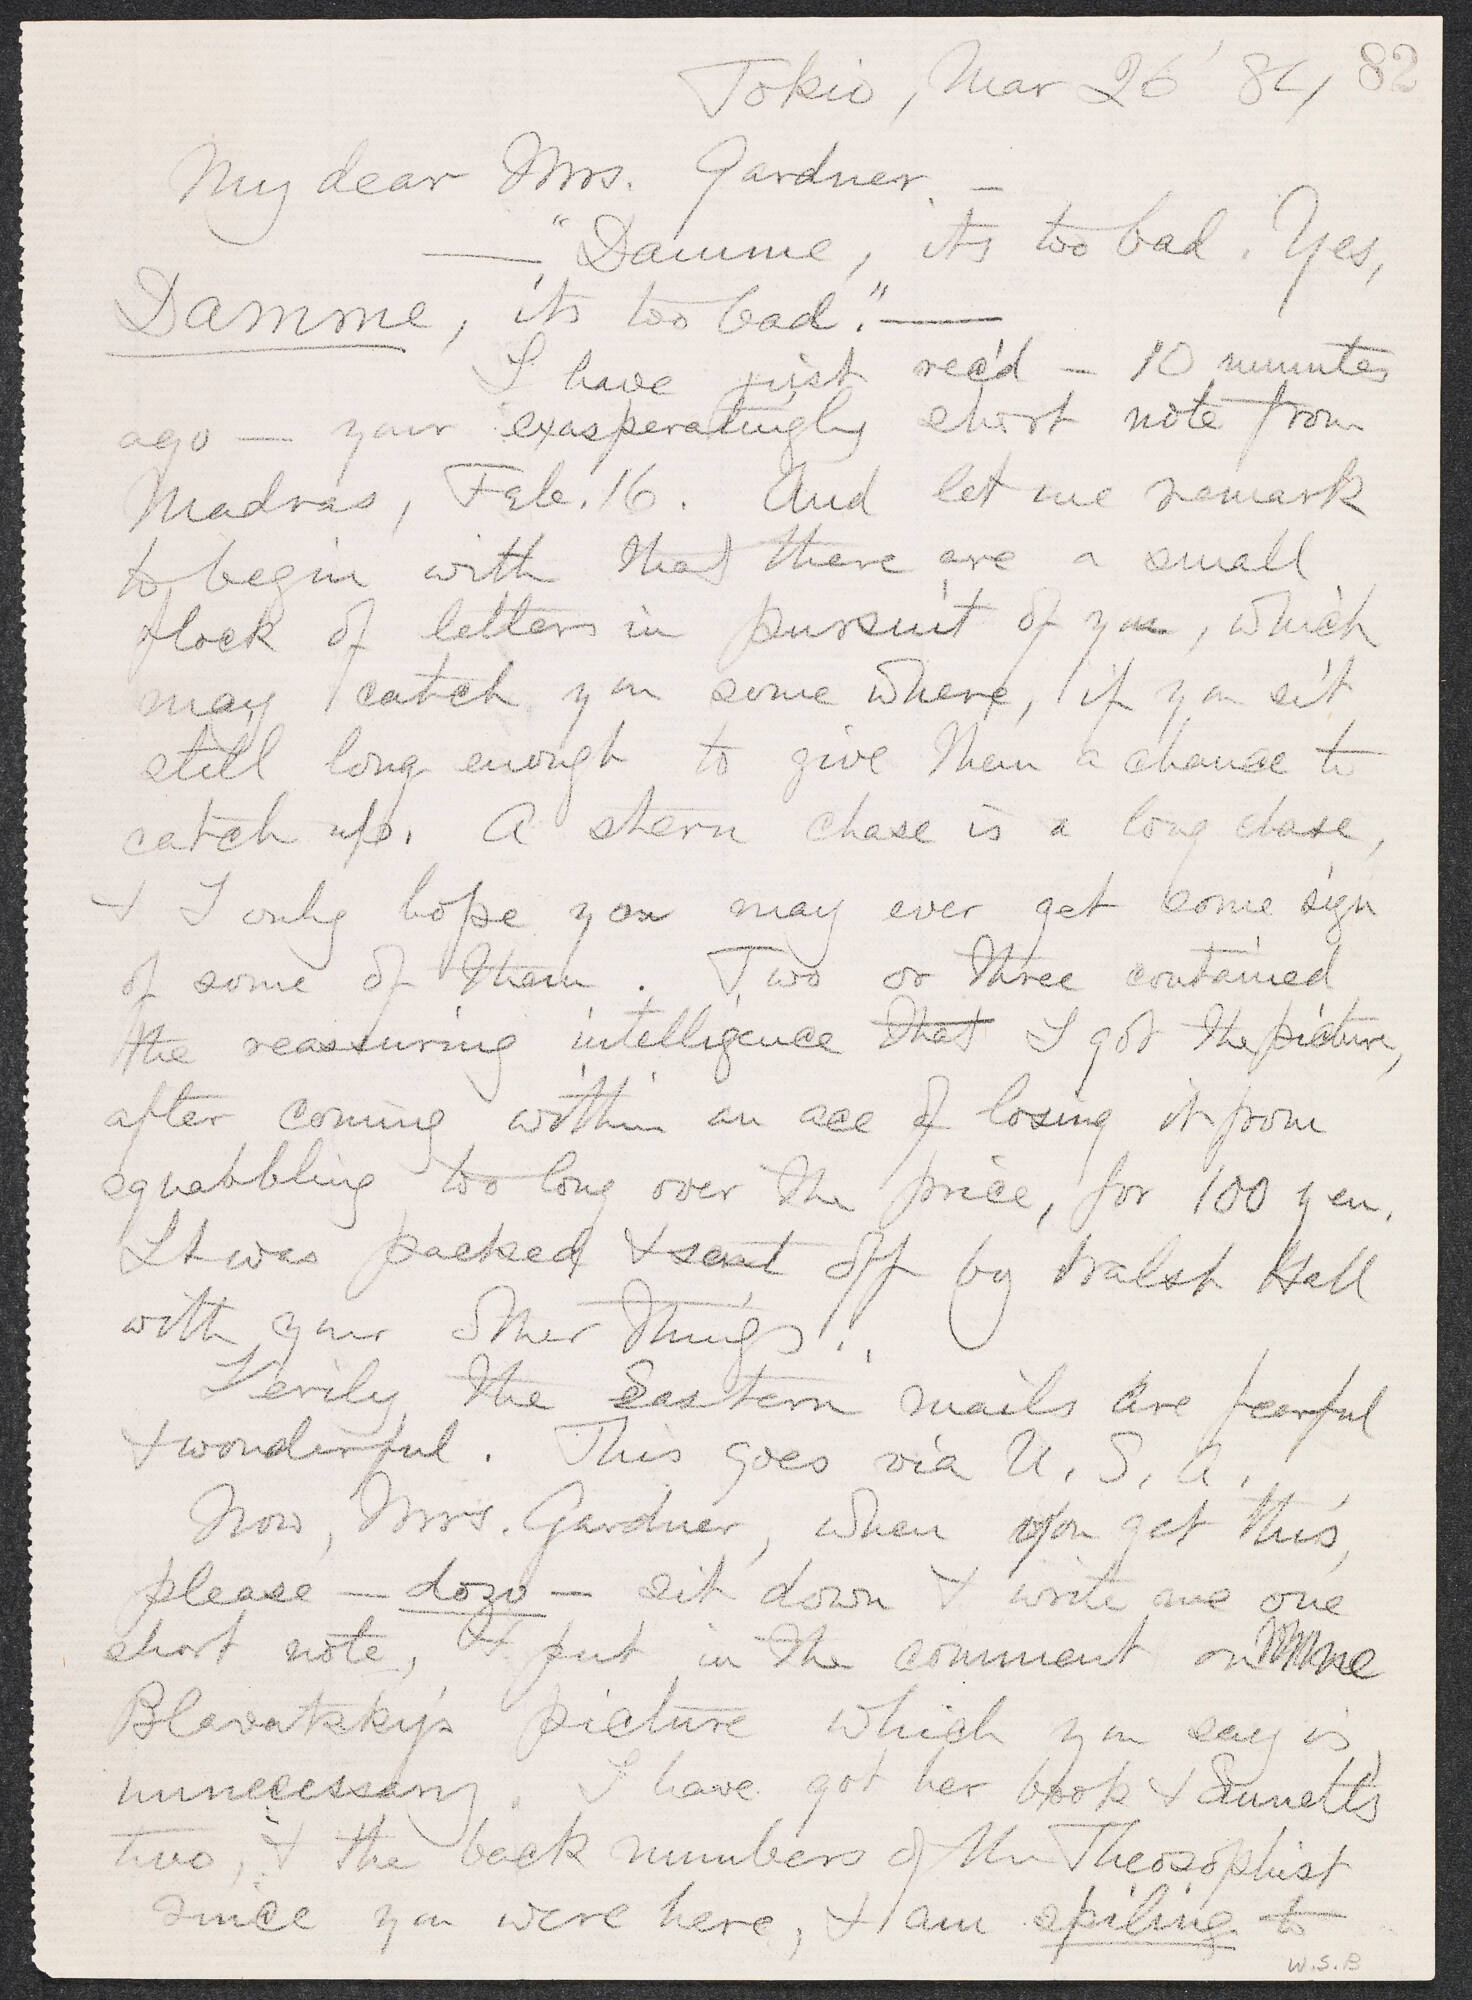 82
Tokio, Mar 26' 84
My dear Mrs. Gardner. —
— "Damme, its too bad. Yes,
Damme, its too bad." —
I have just rec'd — 10 minutes
ago — your exasperatingly short note from
Madras, Feb. 16. And let me remark
to begin with that there are a small
flock of letters in pursuit of you, which
may catch you some where, if you sit
still long enough to give them a chance to
catch up. A stern chase is a long chase,
& I only hope you may ever get some sign
of some of them. Two or three contained
the reassuring intelligence that I got the picture,
after coming within an ace of losing it from
squabbling too long over the price, for 100 yen.
It was packed & sent off by Walsh Hall
with your other things.
Verily the Eastern mails are fearful
& wonderful. This goes via U. S. A.
Now, Mrs. Gardner, when you get this,
please — dozo — sit down & write me one
short note, & put in the comment on Mme
Blavatsky's picture which you say is
unnecessary. I have got her book & Sinnett's
two, & the back numbers of the Theosophist
since you were here, & I am spiling to
W.S.B